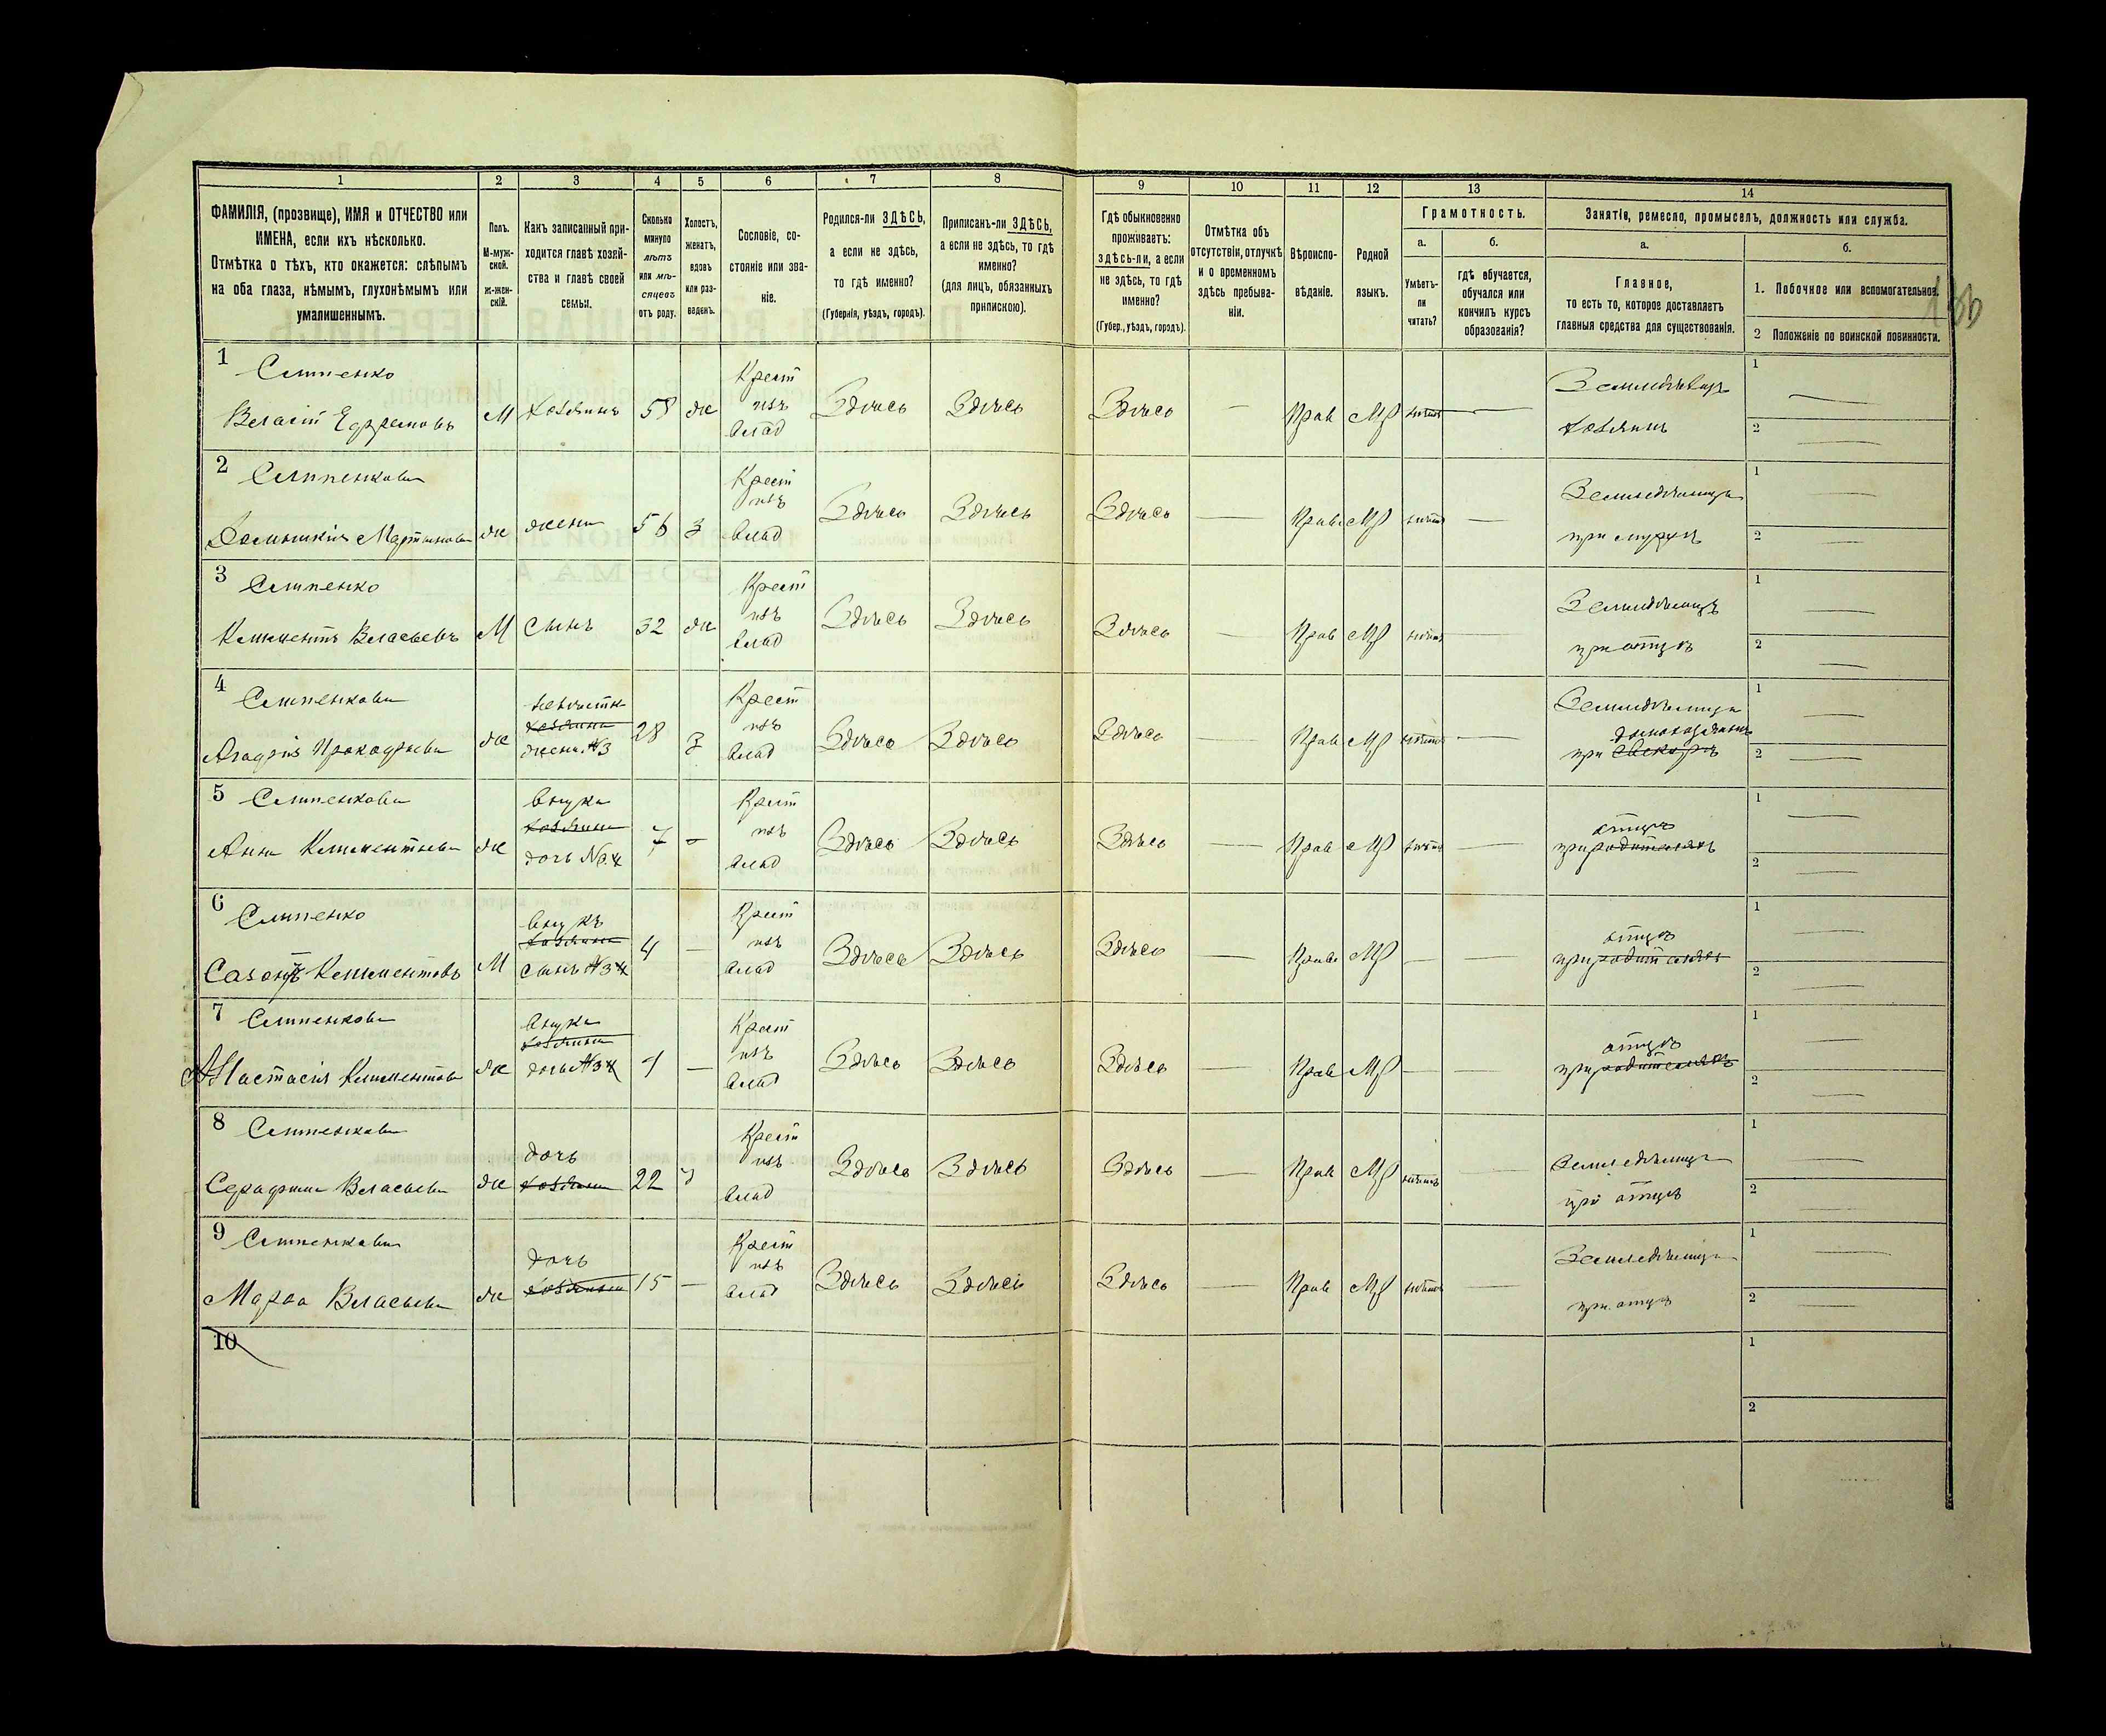 1 2 3 4 5 6 7 8 9 10 11 12 13 14
ФАМИЛІЯ, (прозвище), ИМЯ и ОТЧЕСТВО или
ИМЕНА, если ихъ нѣсколько.
Отмѣтка о тѣхъ, кто окажется: слѣпымъ
на оба глаза, нѣмымъ, глухонѣмымъ или
умалишеннымъ.
Полъ.
М-муж-
ской.
ж-жен-
скій.
Какъ записанный при-
ходится главѣ хозяй-
ства и главѣ своей
семьи.
Сколько
минуло
лѣтъ
или мѣ-
сяцевъ
отъ роду.
Холостъ,
женатъ,
вдовъ
или раз-
веденъ.
Сословіе, со-
стояніе или зва-
ніе.
Родился-ли ЗДѢСЬ,
а если не здѣсь,
то гдѣ именно?
(Губернія, уѣздъ, городъ).
Приписанъ-ли ЗДѢСЬ,
а если не здѣсь, то гдѣ
именно?
(для лицъ, обязанныхъ
припискою).
Гдѣ обыкновенно
проживаетъ:
здѣсь-ли, а если
не здѣсь, то гдѣ
именно?
(Губер., уѣздъ, городъ).
Отмѣтка объ
отсутствіи, отлучкѣ
и о временномъ
здѣсь пребыва-
ніи.
Вѣроиспо-
вѣданіе.
Родной
языкъ.
Грамотность.
а.
Умѣетъ-
ли
читать?
б.
гдѣ обучается,
обучался или
кончилъ курсъ
образованія?
Занятіе, ремесло, промыселъ, должность или служба.
а.
Главное,
то есть то, которое доставляетъ
главныя средства для существованія.
б.
1. Побочное или вспомогательное.
2 Положеніе по воинской повинности.
1
Власій Ефремовъ М хозяинъ 58 ж
Крест
изъ
влад
Здѣсь Здѣсь Здѣсь — Прав Мр нѣтъ —
хозяинъ
1 —
2 —
2
Мартинова ж жена 56 з
Крест
изъ
влад
Здѣсь Здѣсь Здѣсь — Прав Мр нѣтъ —
Земледѣлица
при мужѣ
1 —
2 —
3
Климентъ Власьевъ М сынъ 32 ж
Крест
изъ
влад
Здѣсь Здѣсь Здѣсь — Прав Мр нѣтъ —
Земледѣлецъ
при отцѣ
1 —
2 —
4
Агафія Прокофьева ж
невѣстка
хозяина
жена №3
28 з
Крест
изъ
влад
Здѣсь Здѣсь Здѣсь — Прав Мр нѣтъ —
Земледѣлица
при
1 —
2 —
5
Анна Климентьева ж
внука
хозяина
дочь №
7 —
Крест
изъ
влад
Здѣсь Здѣсь Здѣсь — Прав Мр нѣтъ —
отцѣ
при родителяхъ
1 —
2 —
6
Созонтъ Климентовъ М
внукъ
хозяина
сынъ №
4 —
Крест
изъ
влад
Здѣсь Здѣсь Здѣсь — Прав Мр — —
отцѣ
при родителяхъ
1 —
2 —
7
Анастасія Климентова ж
внука
хозяина
дочь №
1 —
Крест
изъ
влад
Здѣсь Здѣсь Здѣсь — Прав Мр — —
отцѣ
при родителяхъ
1 —
2 —
8
Серафима Власьева ж
дочь
хозяина
22
Крест
изъ
влад
Здѣсь Здѣсь Здѣсь — Прав Мр нѣтъ —
Земледѣлица
при отцѣ
1 —
2 —
9
Марфа Власьева ж
дочь
хозяина
15 —
Крест
изъ
влад
Здѣсь Здѣсь Здѣсь — Прав Мр нѣтъ —
Земледѣлица
при отцѣ
1 —
2 —
10
1
2